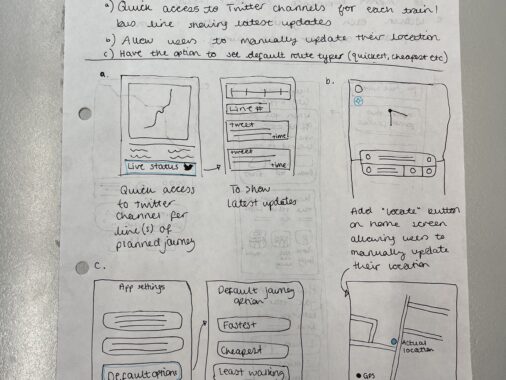 a) Quick access to Twitter channels for each train/
bus line showing latest updates
b) Allow users to manually update their location
c) Have the option to see default route types (quickest, cheapest etc)
a.
Live status
Quick access
to twitter
channel per
line(s) of
planned journey
Line #
tweet
time
tweet
time
To show
latest updates
b.
Add "locate" button
on home screen
allowing users to
manually update
their location
Actual
location
GPS
C.
App settings
Default options
Default journey
option
Fastest
Cheapest
Least walking